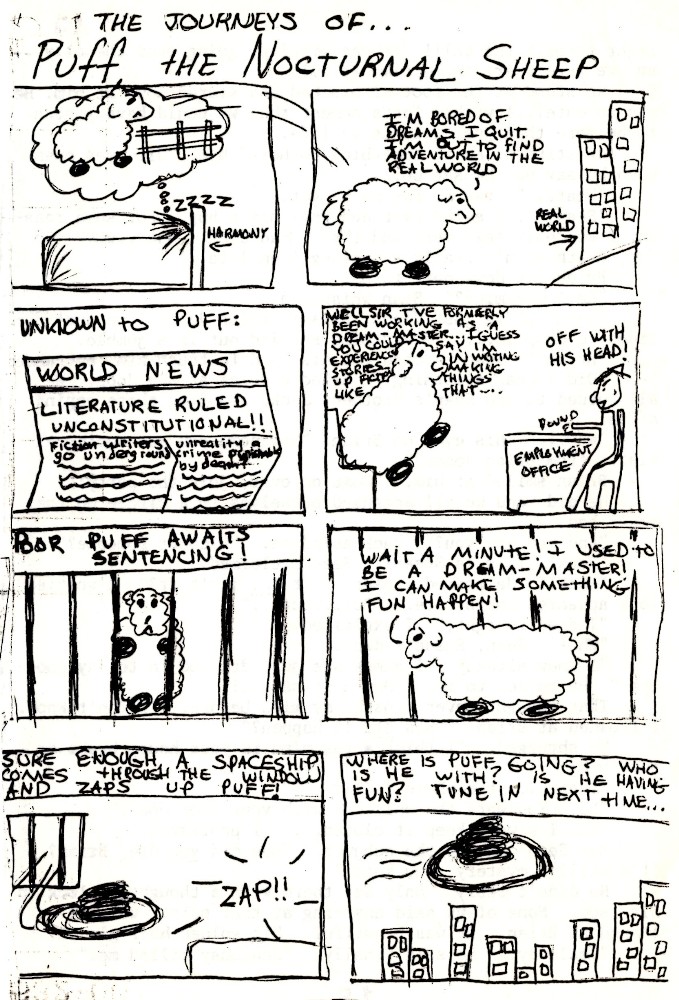 THE JOURNEYS OF...
Puff THE NOCTURNAL SHEEP
ZZZZZ
HARMONY
I'M BORED OF
DREAMS I QUIT.
I'M OUT TO FIND
ADVENTURE IN THE
REAL WORLD
REAL
WORLD
UNKNOWN to PUFF:
WORLD NEWS
LITERATURE RULED
UNCONSTITUTIONAL!!
Fiction writers
go underground
unreality a
crime punishable
by death
WELL SIR I'VE FORMERLY
BEEN WORKING AS A
DREAM-MASTER. I GUESS
YOU COULD SAY I'M
EXPERIENCED IN WRITING
STORIES, MAKING
UP THINGS
LIKE THAT...
OFF WITH
HIS HEAD!
POUND
EMPLOYMENT
OFFICE
POOR PUFF AWAITS
SENTENCING!
WAIT A MINUTE! I USED TO
BE A DREAM-MASTER!
I CAN MAKE SOMETHING
FUN HAPPEN!
SURE ENOUGH, A SPACESHIP
COMES THROUGH THE WINDOW
AND ZAPS UP PUFF!
ZAP!!
WHERE IS PUFF GOING? WHO
IS HE WITH? IS HE HAVING
FUN? TUNE IN NEXT TIME...